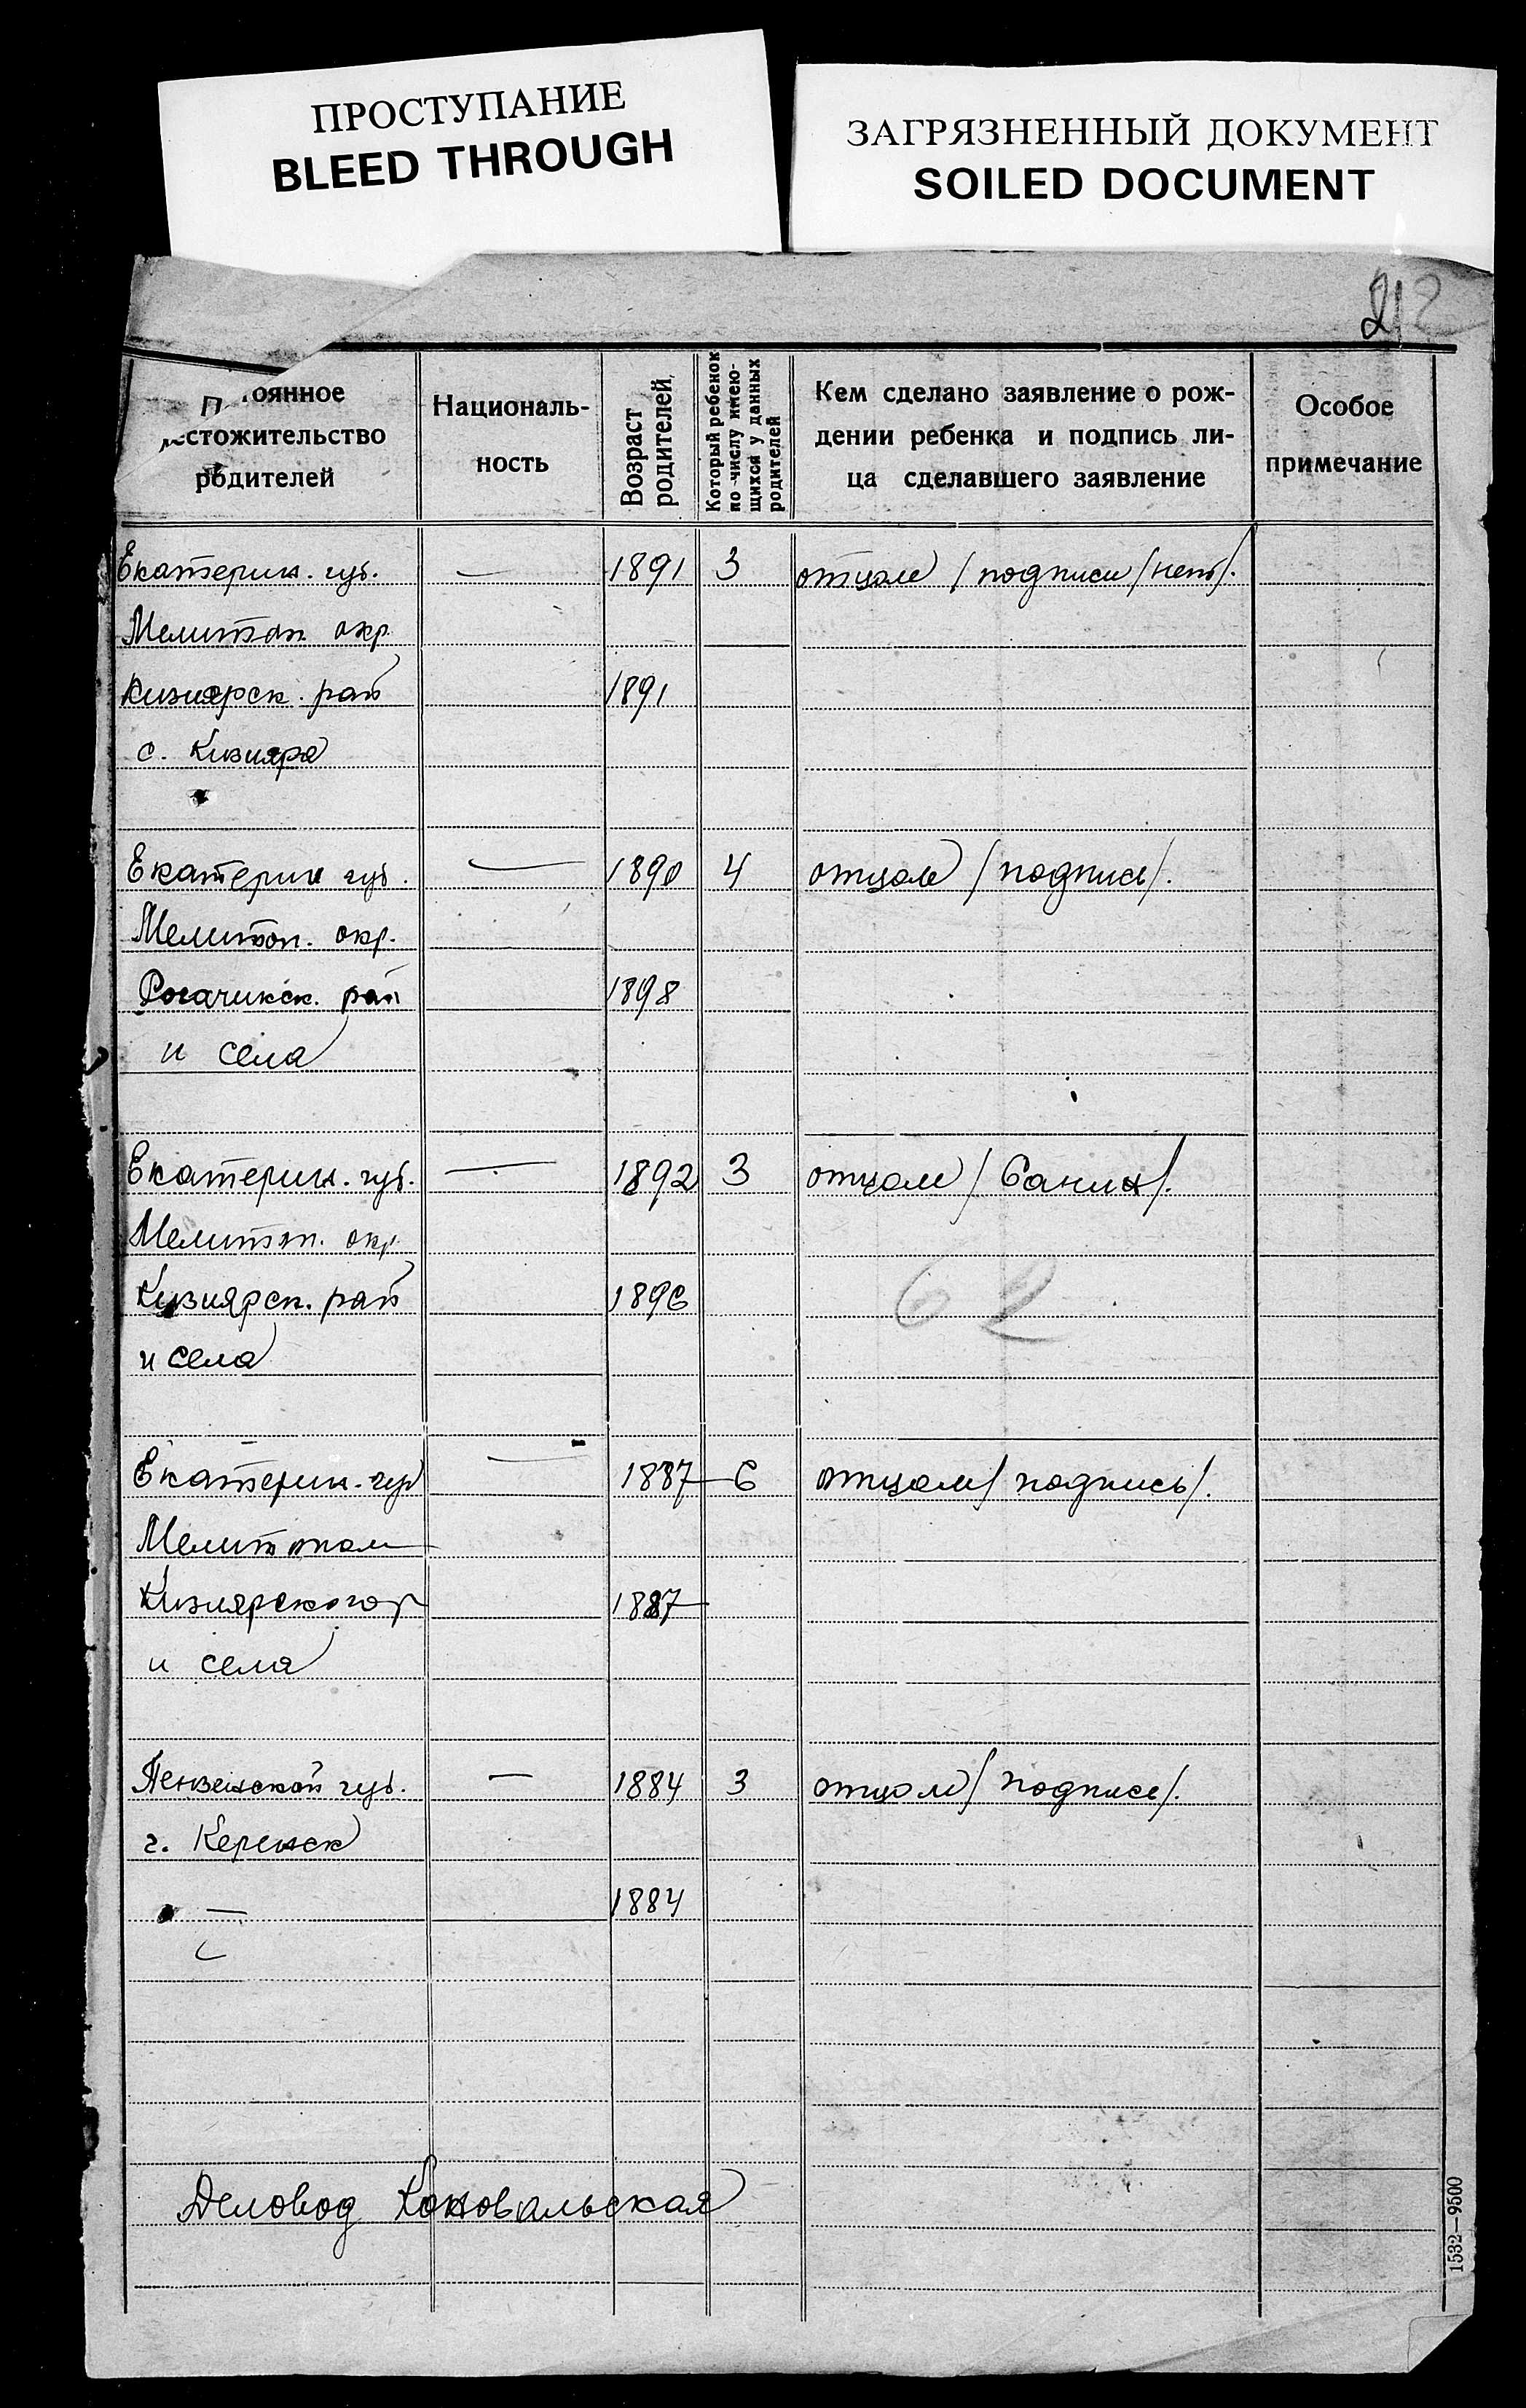 ПРОСТУПАНИЕ
BLEED THROUGH
ЗАГРЯЗНЕННЫЙ ДОКУМЕНТ
SOILED DOCUMENT
212
П оянное
естожительство
родителей
Националь-
ность
Возраст
родителей
Который ребенок
по числу имею-
щихся у данных
родителей
Кем сделано заявление о рож-
дении ребенка и подпись ли-
ца сделавшего заявление
Особое
примечание
Екатерин. губ. — 1891 3 отцом /подписи/нет/.
Мелитоп окр
Кизиярск. рай 1891
с. Кизияра
Екатерин губ. — 1890 4 отцом /подпись/.
Мелитоп. окр.
Рогачикск. рай 1898
и села
Екатерин. губ. — 1892 3 отцом / Санин/.
Мелитоп. окр
Кизиярск. рай 1896
62
и села
Екатерин. губ — 1887 6 отцом/ подпись/.
Мелитопол
Кизиярского р 1887
и села
Пензенской губ. — 1884 3 отцом/ подпись/.
г. Керенск
— 1884
Деловод Коновальская
1532—9500